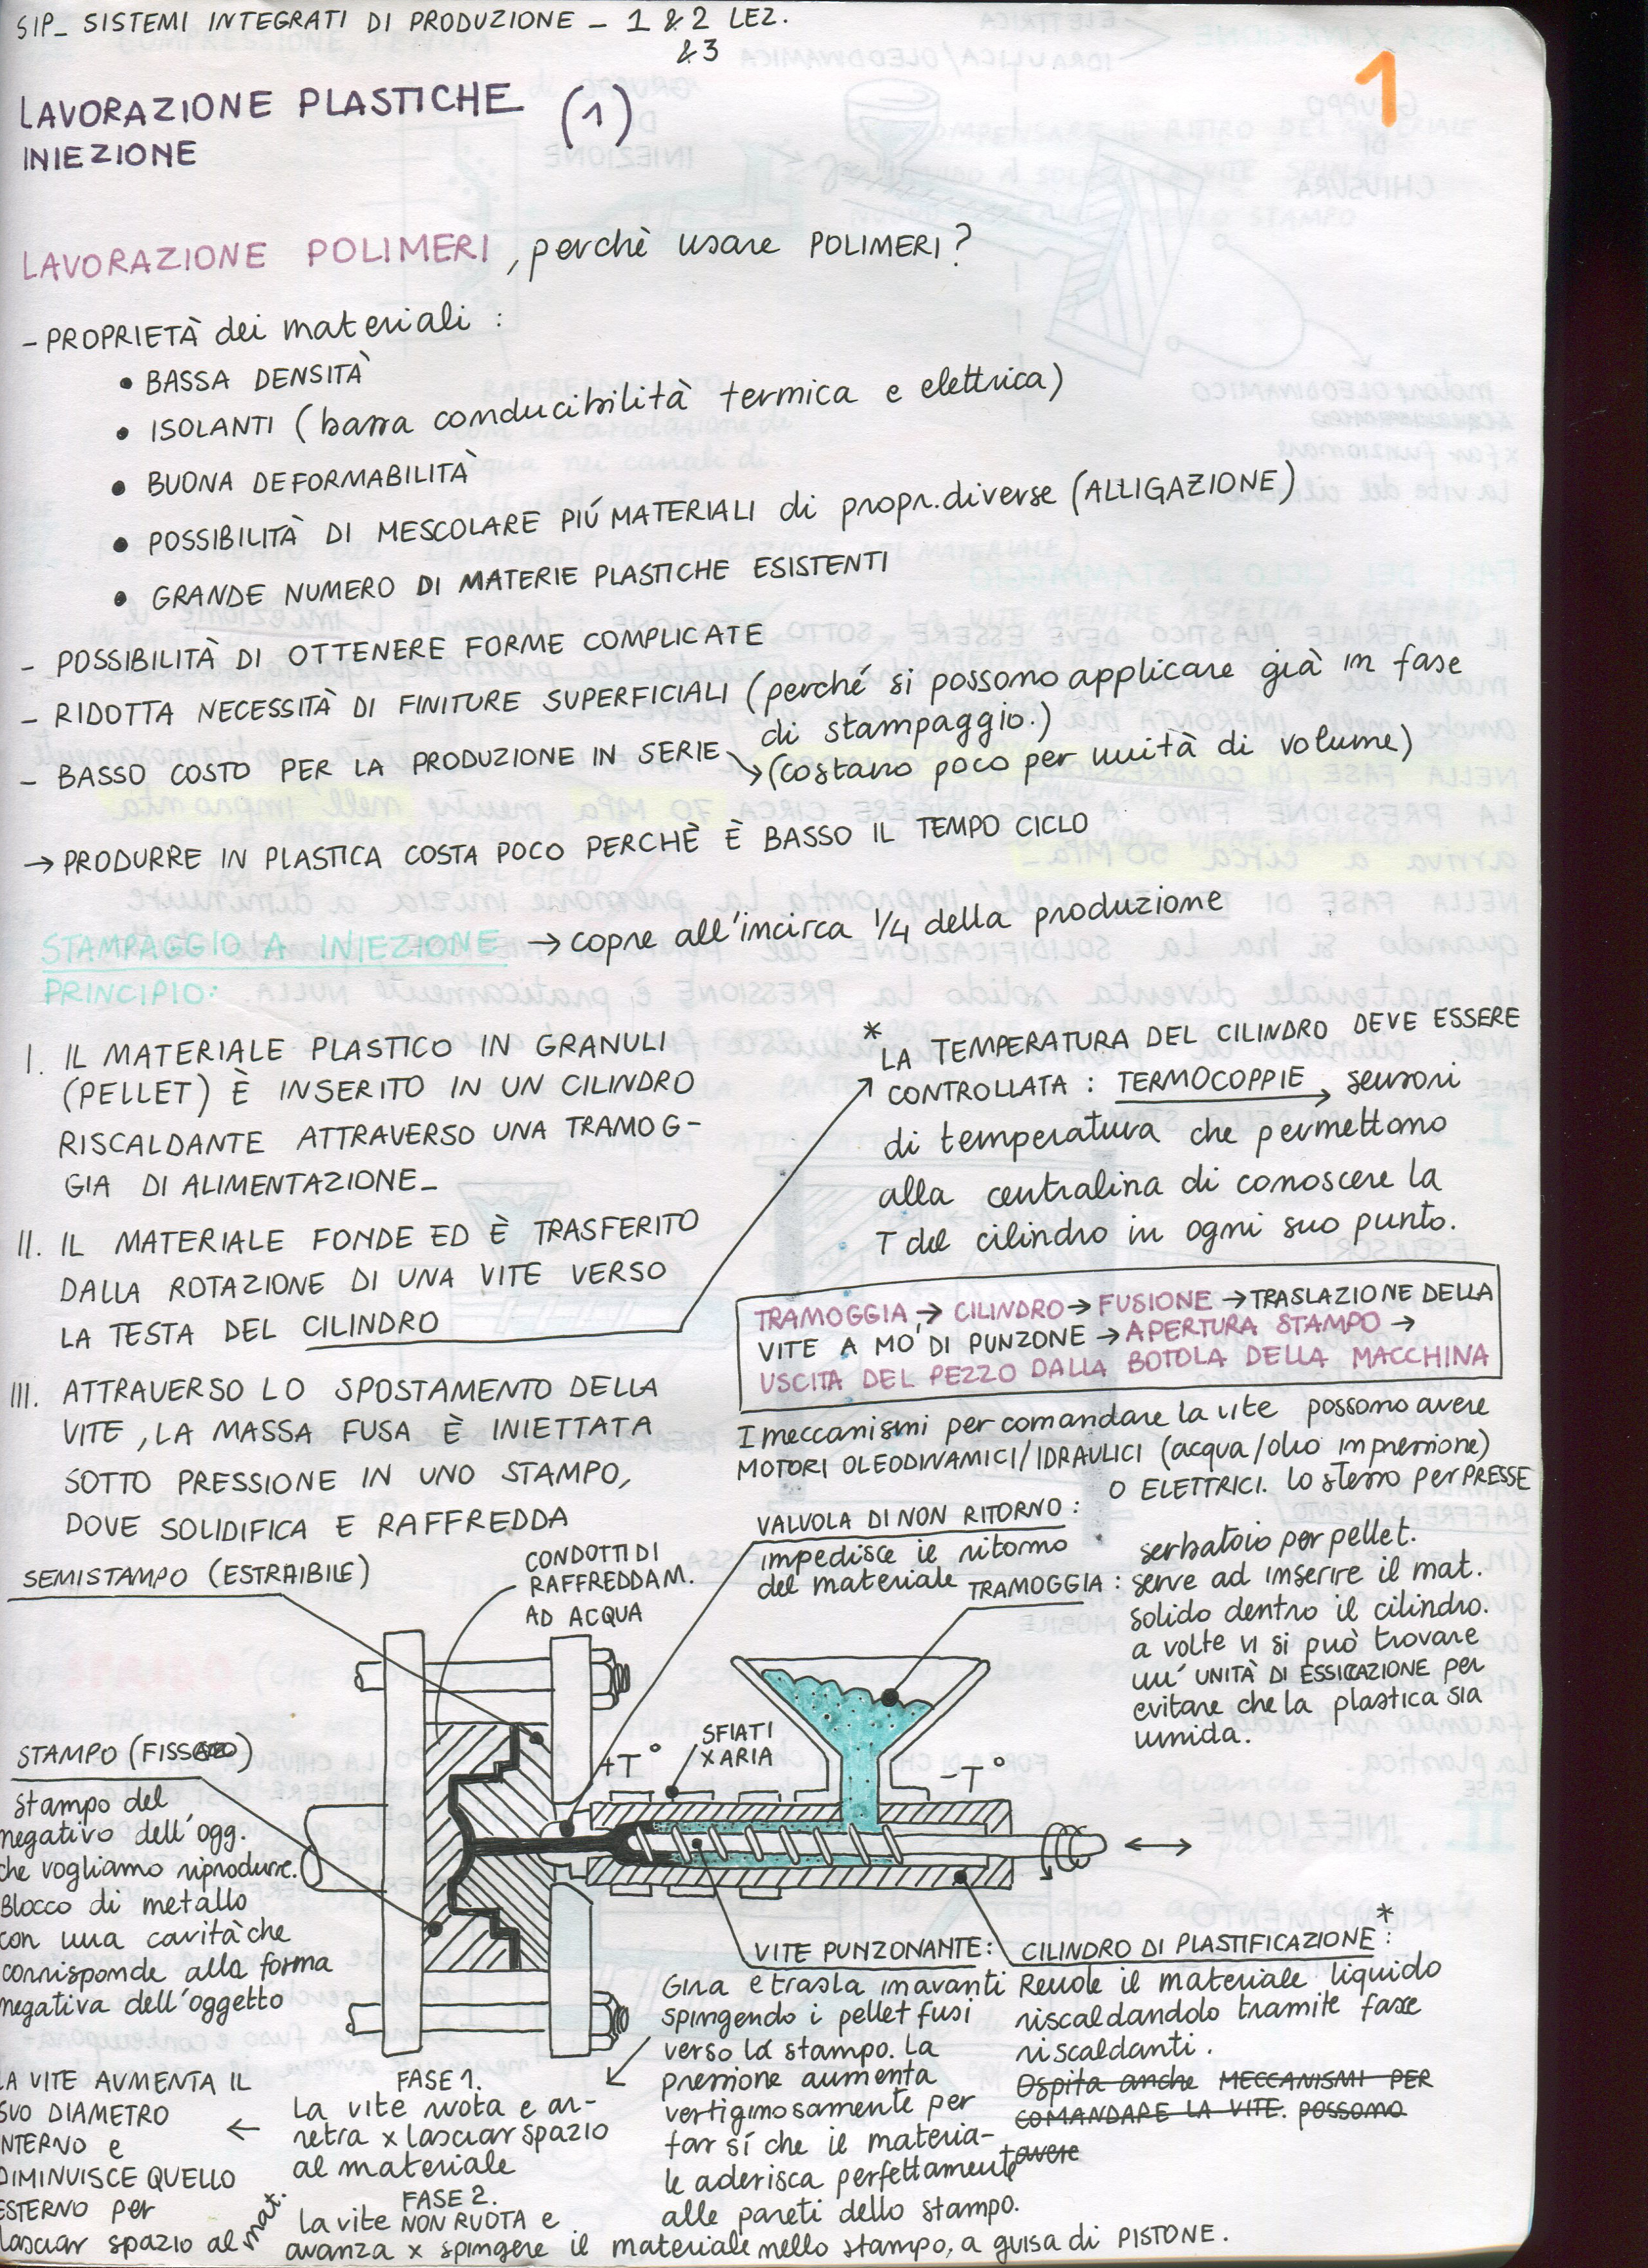 SIP_ SISTEMI INTEGRATI DI PRODUZIONE - 1 & 2 LEZ.
& 3
1
LAVORAZIONE PLASTICHE (1)
INIEZIONE
LAVORAZIONE POLIMERI, perchè usare POLIMERI?
- PROPRIETÀ dei materiali :
• BASSA DENSITÀ
• ISOLANTI (bassa conducibilità termica e elettrica)
• BUONA DEFORMABILITÀ
• POSSIBILITÀ DI MESCOLARE PIÚ MATERIALI di propr. diverse (ALLIGAZIONE)
• GRANDE NUMERO DI MATERIE PLASTICHE ESISTENTI
- POSSIBILITÀ DI OTTENERE FORME COMPLICATE
- RIDOTTA NECESSITÀ DI FINITURE SUPERFICIALI (perché si possono applicare già in fase
di stampaggio.)
- BASSO COSTO PER LA PRODUZIONE IN SERIE → (costano poco per unità di volume)
→ PRODURRE IN PLASTICA COSTA POCO PERCHÈ È BASSO IL TEMPO CICLO
STAMPAGGIO A INIEZIONE → copre all'incirca 1/4 della produzione
PRINCIPIO:
I. IL MATERIALE PLASTICO IN GRANULI
(PELLET) È INSERITO IN UN CILINDRO
RISCALDANTE ATTRAVERSO UNA TRAMOG-
GIA DI ALIMENTAZIONE_
II. IL MATERIALE FONDE ED È TRASFERITO
DALLA ROTAZIONE DI UNA VITE VERSO
LA TESTA DEL CILINDRO
III. ATTRAVERSO LO SPOSTAMENTO DELLA
VITE, LA MASSA FUSA È INIETTATA
SOTTO PRESSIONE IN UNO STAMPO,
DOVE SOLIDIFICA E RAFFREDDA
* LA TEMPERATURA DEL CILINDRO DEVE ESSERE
CONTROLLATA : TERMOCOPPIE → sensori
di temperatura che permettono
alla centralina di conoscere la
T del cilindro in ogni suo punto.
TRAMOGGIA → CILINDRO → FUSIONE → TRASLAZIONE DELLA
VITE A MO' DI PUNZONE → APERTURA STAMPO →
USCITA DEL PEZZO DALLA BOTOLA DELLA MACCHINA
I meccanismi per comandare la vite possono avere
MOTORI OLEODINAMICI/IDRAULICI (acqua/olio in pressione)
O ELETTRICI. lo stesso per PRESSE
SEMISTAMPO (ESTRAIBILE)
CONDOTTI DI
RAFFREDDAM.
AD ACQUA
VALVOLA DI NON RITORNO :
impedisce il ritorno
del materiale
TRAMOGGIA : serbatoio per pellet.
serve ad inserire il mat.
solido dentro il cilindro.
a volte vi si può trovare
un' UNITÀ DI ESSICAZIONE per
evitare che la plastica sia
umida.
SFIATI
X ARIA
+T°
-T°
STAMPO (FISSO)
Stampo del
negativo dell'ogg.
che vogliamo riprodurre.
Blocco di metallo
con una cavità che
corrisponde alla forma
negativa dell'oggetto
VITE PUNZONANTE:
Gira e trasla in avanti
spingendo i pellet fusi
verso lo stampo. La
pressione aumenta
vertiginosamente per
far sí che il materia-
le aderisca perfettamente
alle pareti dello stampo.
CILINDRO DI PLASTIFICAZIONE * :
Rende il materiale liquido
riscaldandolo tramite fasce
riscaldanti.
Ospita anche MECCANISMI PER
COMANDARE LA VITE. POSSONO
avere
FASE 1.
La vite ruota e ar-
retra x lasciar spazio
al materiale
FASE 2.
la vite NON RUOTA e
avanza x spingere il materiale nello stampo, a guisa di PISTONE.
LA VITE AUMENTA IL
SUO DIAMETRO
INTERNO e
DIMINUISCE QUELLO
ESTERNO per
lasciar spazio al mat.